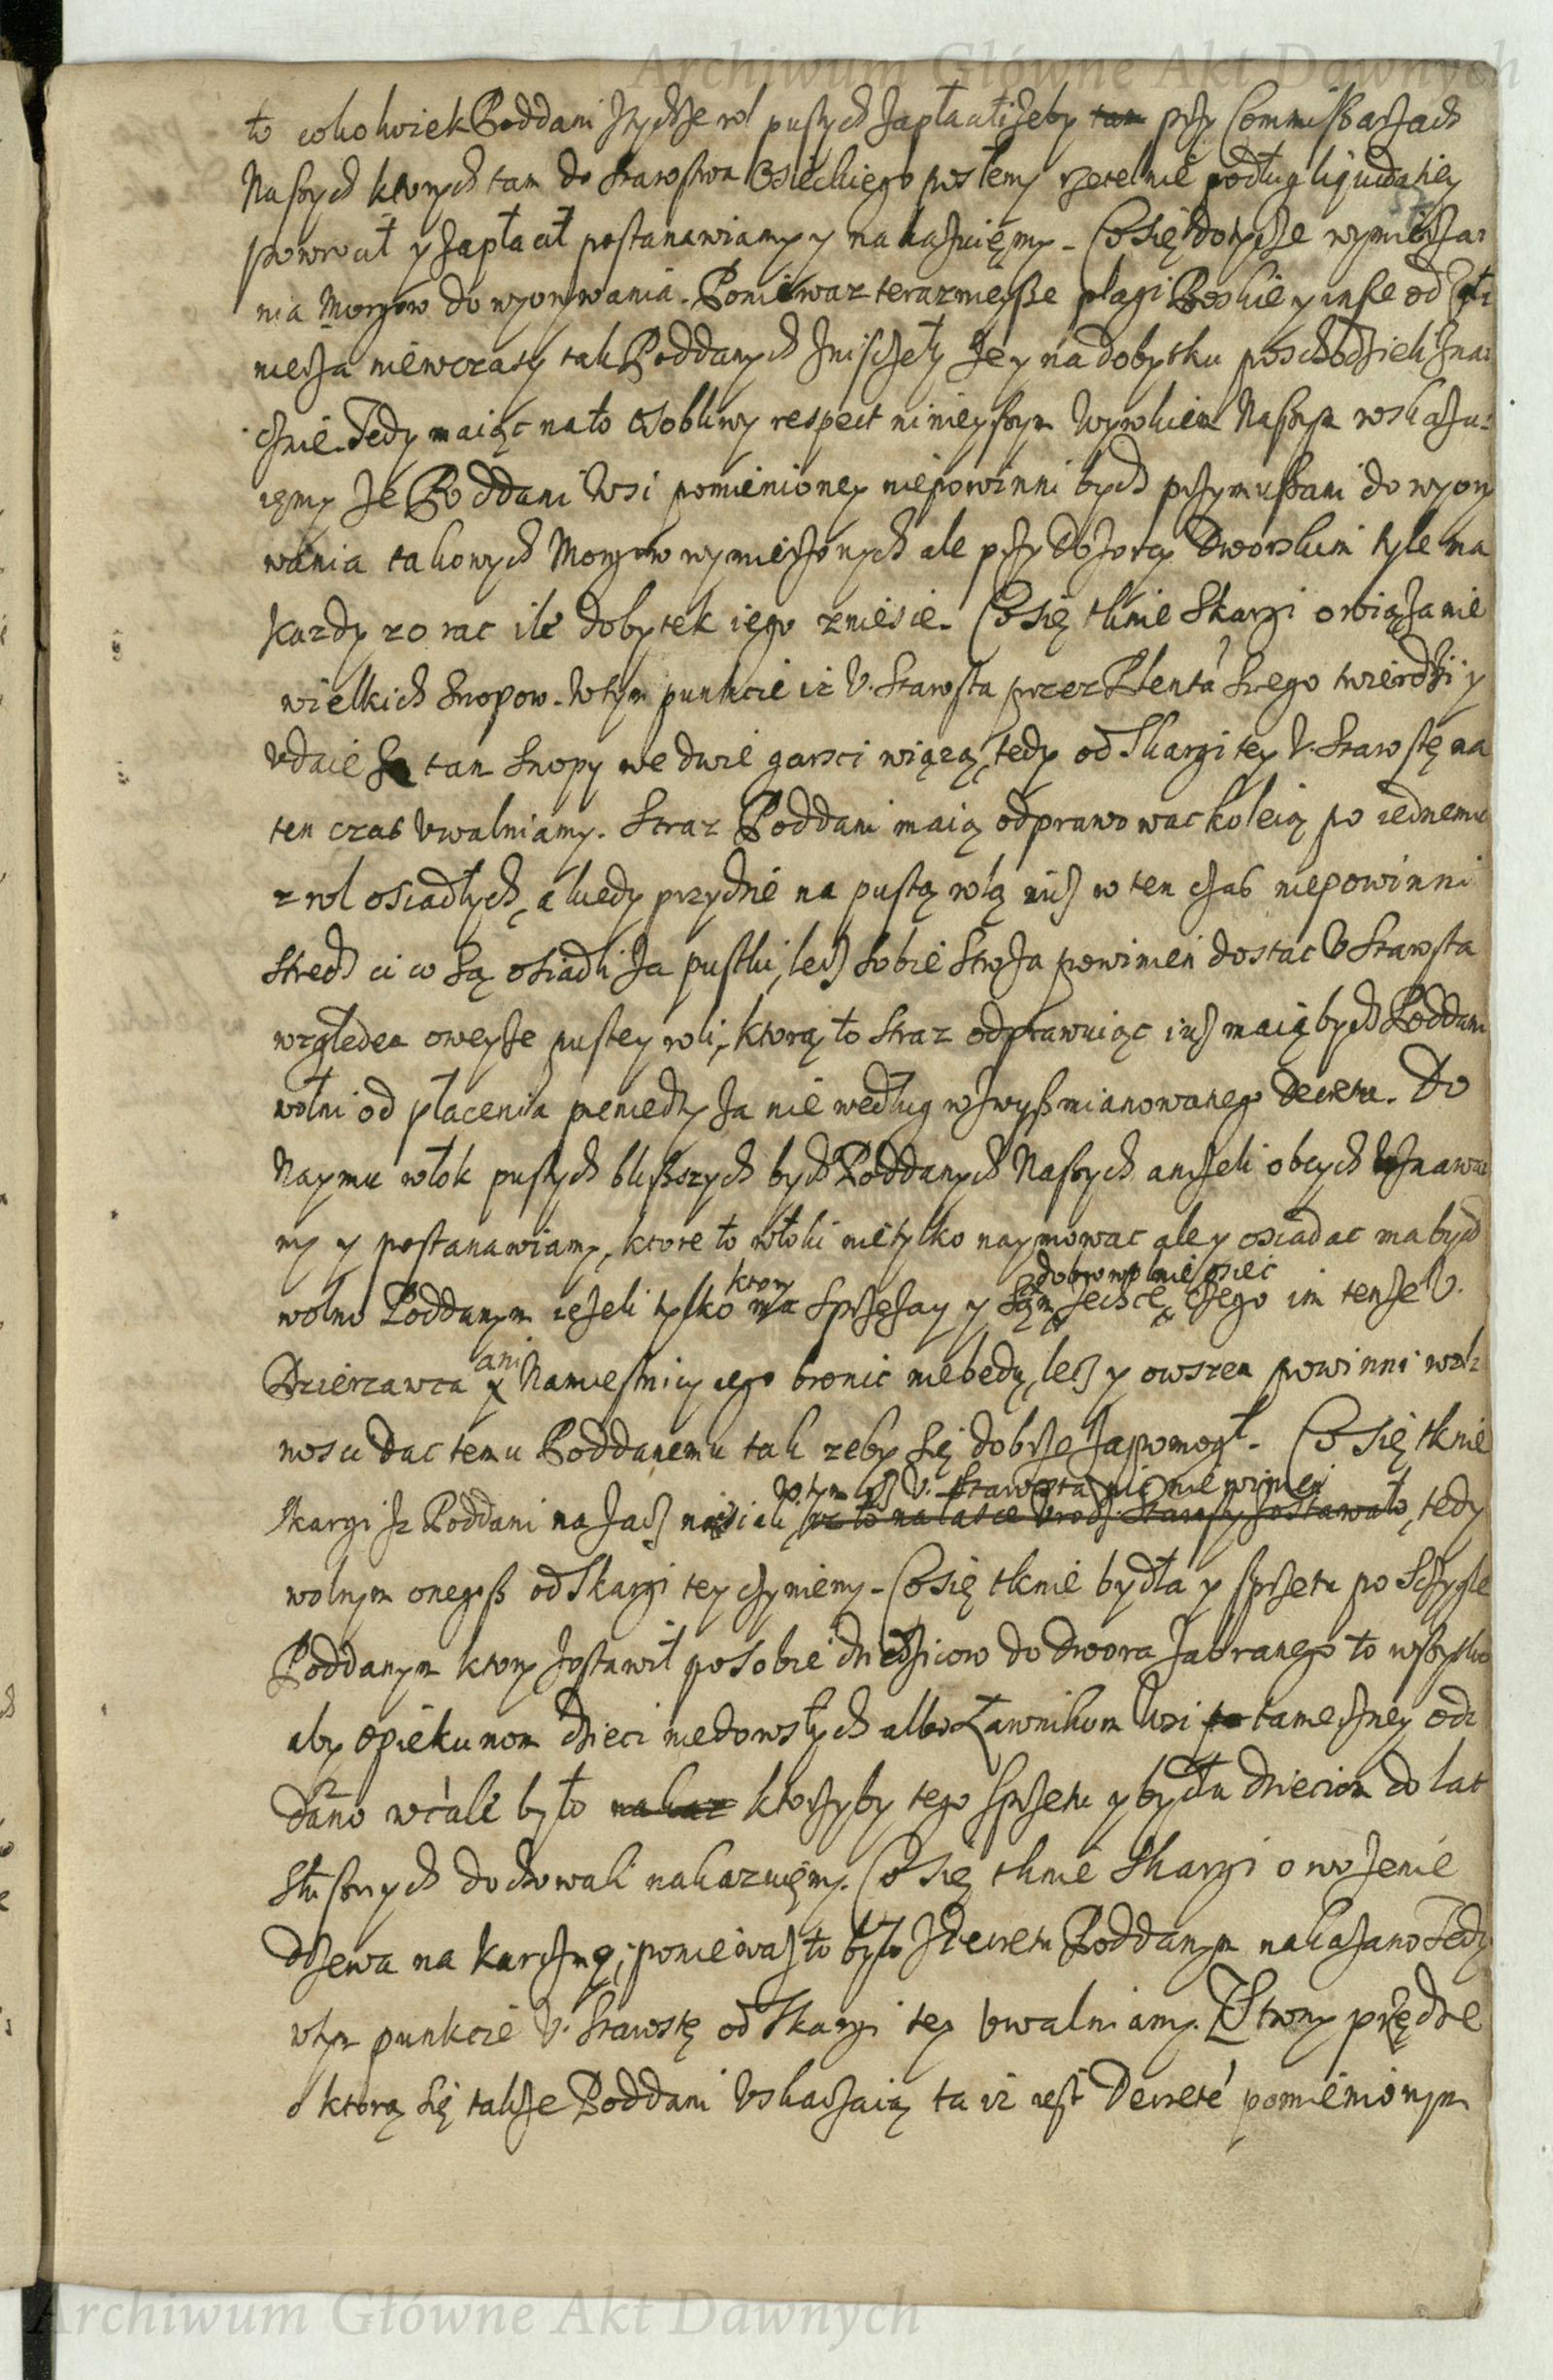 Archiwum Główne Akt Dawnych
to cokolwiek Poddani z tychże rol pustych zapłacili żeby tam przy Commissarzach
Naszych ktorych tam do Starostwa Osieckiego poslemy rzetelnie podług liquidatiey
powrocił y zapłacił postanawiamy y nakazuięmy. Co się dotycze wymierza-
nia Morgow do wyorywania. Poniewaz terazniejsze plagi Boskie y insze od
niewczasy tak Poddanych zniszczeły że y na dobytku poschodzieli zna-
cznie. Tedy maiąc na to osobliwy respect ninieyszym Wyrokiem Naszym roskazu-
ięmy że Poddani Wsi pomienioney niepowinni bydz przymuszani do wyory
wania takowych Morgow wymierzonych ale przy dozorcy Dworskim tyle ma
kazdy zorac ile dobytek iego zniesie. Co się tknie Skargi o wiązanie
wielkich snopow. W tym punkcie iz U. Starosta przez Plenta Swego twierdzi y
udaie ze tam snopy we dwie garsci wiązą, tedy od Skargi tey U. Starostę na
ten czas uwalniamy. Straz Poddani maią odprawowac koleią po iednemu
z rol osiadłych, a kiedy przydzie na pustą rolą iuz w ten czas niepowinni
strzedz ci co są osiadli za pustki, lecz sobie stroża powinien dostac U Starosta
względem oweyże pustey roli, ktorą to straz odprawuiąc iuz maią bydz Poddani
wolni od płacenia pieniedzy za nie według wzwysz mianowanego Decretu. Do
Naymu włok pustych bliższych bydz Poddanych Naszych anizeli obcych uznawa-
my y postanawiamy, ktore to włoki nietylko naymowac ale y osiadac ma bydz
ktory dobrowolnie osiesc
wolno Poddanym iezeli tylko ma sprzężay y sam zechce, czego im tenże U.
ani
Dzierzawca y Namiestnicy iego bronic niebedą, lecz y owszem powinni wol-
nosci dac temu Poddanemu tak zeby się dobrze zapomogł. Co się tknie
W tym iz U. Starosta nic nie winien
Skargi iz Poddani na Jaz nosieli iz to na łasce Urodz. Starosty zostawało, tedy
wolnym onegosz od Skargi tey czyniemy. Co się tknie bydła y sprzetu po Sczygle
Poddanym ktory zostawił po sobie dziedzicow do dwora zabranego to wszystko
aby opiekunom dzieci niedorosłych albo Ławnikom Wsi tameczney od-
dano wcale było nakaz ktorzyby tego sprzetu y bydła dzieciom do lat
słusznych dochowali nakazuięmy. Co się tknie Skargi o wożenie
drzewa na karczmę, poniewaz to było z Decretu Poddanym nakazano Tedy
w tym punkcie U. Starostę od Skargi tey uwalniamy. Z Strony przędze
o ktorą się takze Poddani Uskarzaią ta iz iest Decretē pomienionym
Archiwum Główne Akt Dawnych